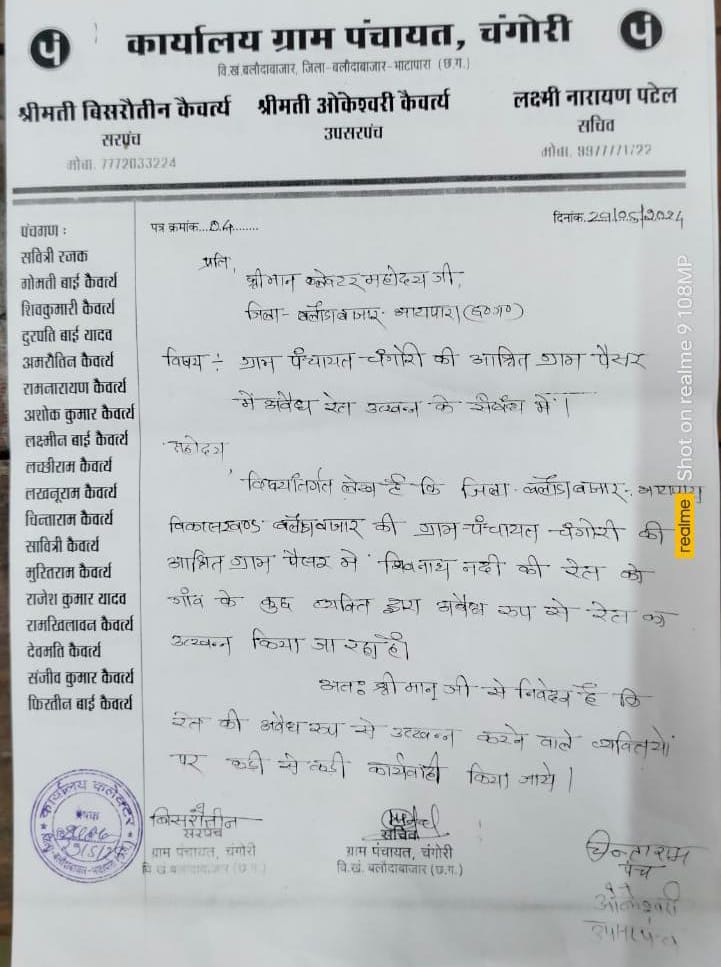 पं
कार्यालय ग्राम पंचायत, चंगोरी
पं
वि.खं.बलौदाबाजार, जिला-बलौदाबाजार-भाटापारा (छ.ग.)
श्रीमती बिसरौतीन कैवर्त्य
सरपंच
मोबा. 7772033224
श्रीमती ओकेश्वरी कैवर्त्य
उपसरपंच
लक्ष्मी नारायण पटेल
सचिव
मोबा.
पत्र क्रमांक...04........
दिनांक. 29/05/2024
पंचगण :
सवित्री रजक
गोमती बाई कैवर्त्य
शिवकुमारी कैवर्त्य
दुरपति बाई यादव
अमरौतिन कैवर्त्य
रामनारायण कैवर्त्य
अशोक कुमार कैवर्त्य
लक्ष्मीन बाई कैवर्त्य
लच्छीराम कैवर्त्य
लखनूराम कैवर्त्य
चिन्ताराम कैवर्त्य
सावित्री कैवर्त्य
मुरितराम कैवर्त्य
राजेश कुमार यादव
रामखिलावन कैवर्त्य
देवमति कैवर्त्य
संजीव कुमार कैवर्त्य
फिरतीन बाई कैवर्त्य
प्रति,
श्रीमान कलेक्टर महोदय जी,
जिला- बलौदाबाजार- भाटापारा (छ०ग०)
विषय :- ग्राम पंचायत-चंगोरी की आश्रित ग्राम पैसर
में अवैध रेत उत्खनन के संबंध में।
महोदय
विषयांतर्गत लेख है कि जिला - बलौदाबाजार - भाटापारा
विकासखण्ड बलौदाबाजार की ग्राम-पंचायत-चंगोरी की
आश्रित ग्राम पैसर में शिवनाथ नदी की रेत को
गांव के कुछ व्यक्ति द्वारा अवैध रूप से रेत का
उत्खनन किया जा रहा है।
अतः श्रीमान् जी से निवेदन है कि
रेत की अवैध रूप से उत्खनन करने वाले व्यक्तियों
पर कड़ी से कड़ी कार्यवाही किया जाये।
कार्यालय कलेक्टर
बिसरौतीन
सरपंच
ग्राम पंचायत, चंगोरी
वि.खं. बलौदाबाजार (छ.ग.)
सचिव
ग्राम पंचायत, चंगोरी
वि.खं. बलौदाबाजार (छ.ग.)
चिन्ताराम
पंच
ओकेश्वरी
उपसरपंच
realme Shot on realme 9 108MP